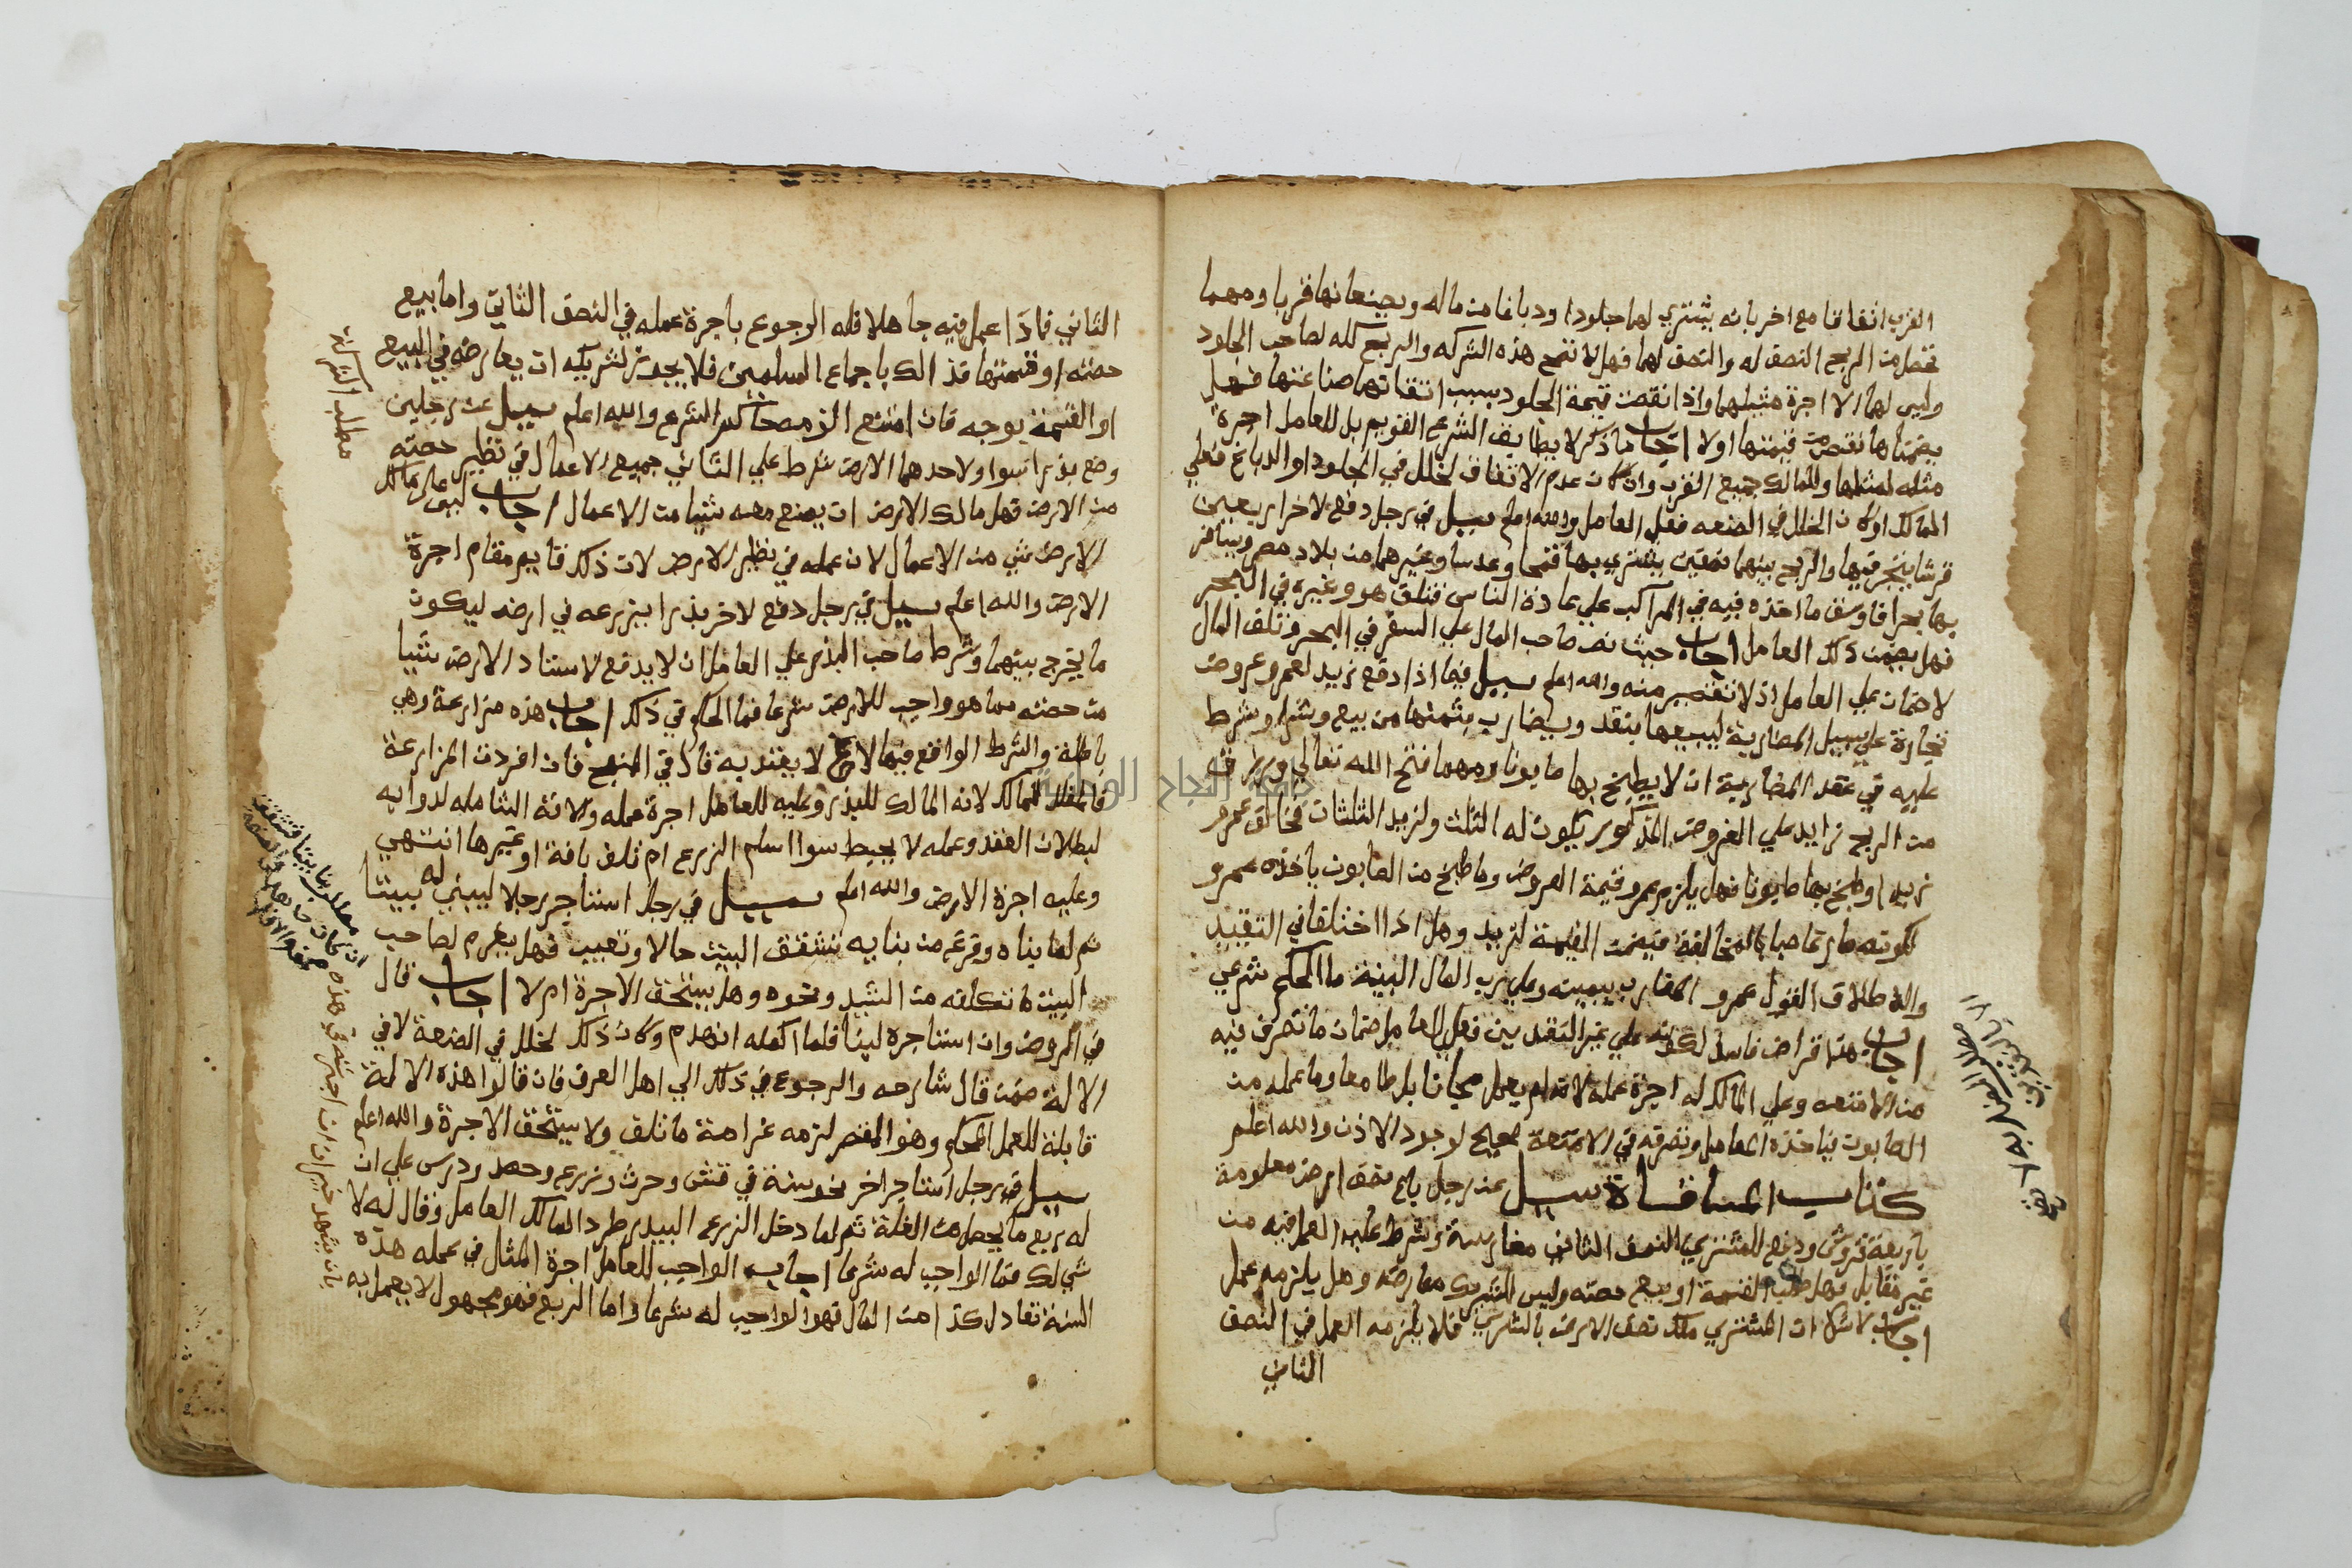 القرب اتفاقا مع اخر بانه يشتري لهما جلودا ودباغا من ماله ويصنعانها قربا ومهما
تحصل من الربح النصف له والنصف لهما فهل لا تصح هذه الشركه والربح كله لصاحب الجلود
وليس لهما الا اجرة مثلهما واذا نقصت قيمة الجلود بسبب اتقانهما صناعتها فهل
يضمنا ما نقص من قيمتها اولا اجاب ما ذكر لا يطابق الشرع القويم بل للعامل اجرة
مثله لمثلها وللمالك جميع القرب وان كان عدم الاتفاق لخلل في الجلود او الدباغ فعلي
المالك او كان الخلل في الصنعه فعلي العامل والله اعلم سيل في رجل دفع لاخر اربعين
قرشا يتجر فيها والربح بينهما نصفين يشتري بها قمحا وعدسا وغيرهما من بلاد مصر ويسافر
بها بحرا فاوسق ما اخذه فيه في المراكب علي عادة الناس فتلف هو وغيره في البحر
فهل يضمن ذلك العامل اجاب حيث نص صاحب المال علي السفر في البحر فتلف المال
لا ضمان علي العامل اذ لا تقصير منه والله اعلم سيل فيما اذا دفع زيد لعمرو عروض
تجارة علي سبيل المضاربة ليبيعها بنقد ويضارب بثمنها من بيع وشرا وشرط
عليه في عقد المضاربة ان لا يطبخ بها صابونا ومهما فتح الله تعالي ورزق
من الربح زايد علي العروض المذكور يكون له الثلث ولزيد الثلثان فخالف عمرو
زيد اوطبخ بها صابونا فهل يلزم عمرو قيمة العروض وما طبخ من الصابون ياخذه عمرو
لكونه صار غاصبا بالمخالفة فيضمن القيمة لزيد وهل اذا اختلفا في التقييد
والاطلاق القول عمرو المضارب بيمينه وعلي رب المال البينة ما الحكم شرعي
اجاب هذا قراض فاسد لكونه علي غير النقدين فعلي العامل ضمان ما تصرف فيه
من الامتعه وعلي المالك له اجرة عمله لانه لم يعمل مجانا بل طامعا وما عمله من
الصابون فياخذه العامل وتصرفه في الامتعة صحيح لوجود الاذن والله اعلم
كتاب المساقاة سيل عن رجل باع نصف ارض معلومة
باربعة قروش ودفع للمشتري النصف الثاني مغارسة وشرط عليه العمل فيه من
غير مقابل فهل طلب القسمة او بيع حصته وليس للشريك معارضته وهل يلزمه عمل
اجاب لا شك ان المشتري ملك نصف الارض بالشري فلا يلزمه العمل في النصف
الثاني
الثاني فاذا عمل فيه جاهلا فله الرجوع باجرة عمله في النصف الثاني واما بيع
حصته او قسمتها فذالك باجماع المسلمين فلا يجوز لشريكه ان يعارضه في البيع
او القسمة بوجه فان امتنع الزمه حاكم الشرع والله اعلم سيل عن رجلين
وضع بذرا سوا ولاحدهما الارض شرط علي الثاني جميع الاعمال في نظير حصته
من الارض فهل مالك الارض ان يصنع معه شيا من الاعمال اجاب ليس علي مالك
الارض شي من الاعمال لان عمله في نظير الارض لان ذلك قايم مقام اجرة
الارض والله اعلم سيل في رجل دفع لاخر بذرا يزرعه في ارضه ليكون
ما يخرج بينهما وشرط صاحب البذر علي العامل ان لا يدفع لاستاد الارض شيا
من حصته مما هو واجب للارض شرعا فما الحكم في ذلك اجاب هذه مزارعة وهي
باطلة والشرط الواقع فيها لاغ لا يعتد به قال في المنهج فان افردت المزارعة
فالمغل للمالك لانه المالك للبذر وعليه للعامل اجرة عمله والاته الشامله لدوابه
لبطلان العقد وعمله لا يحبط سوا اسلم الزرع ام تلف بافة او غيرها انتهي
وعليه اجرة الارض والله اعلم سيل في رجل استاجر رجلا ليبني له بيتا
ثم لما بناه وفرغ من بنايه تشقق البيت حالا وتعيب فهل يغرم لصاحب
البيت ما تكلفه من الشيد ونحوه وهل يستحق الاجرة ام لا اجاب قال
في الروض وان استاجره لبنا فلما اكمله انهدم وكان ذلك لخلل في الصنعة لا في
الالة ضمن قال شارحه والرجوع في ذلك الي اهل العرف فان قالوا هذه الالة
قابلة للعمل المحكم وهو المقصر لزمه غرامة ما تلف ولا يستحق الاجرة والله اعلم
سيل في رجل استاجر اخر نحو سنة في قتش وحرث وزرع وحصد ودرس علي ان
له ربع ما يحصل من الغلة ثم لما دخل الزرع البيدر طرد المالك العامل وقال له لا
شي لك فما الواجب له شرعا اجاب الواجب للعامل اجرة المثل في عمله هذه
السنة تعادل كذا من المال فهو الواجب له شرعا واما الربع فهو مجهول لا يعمل به
مطلب الشركة
مطلب بنا بيتا فتشقق